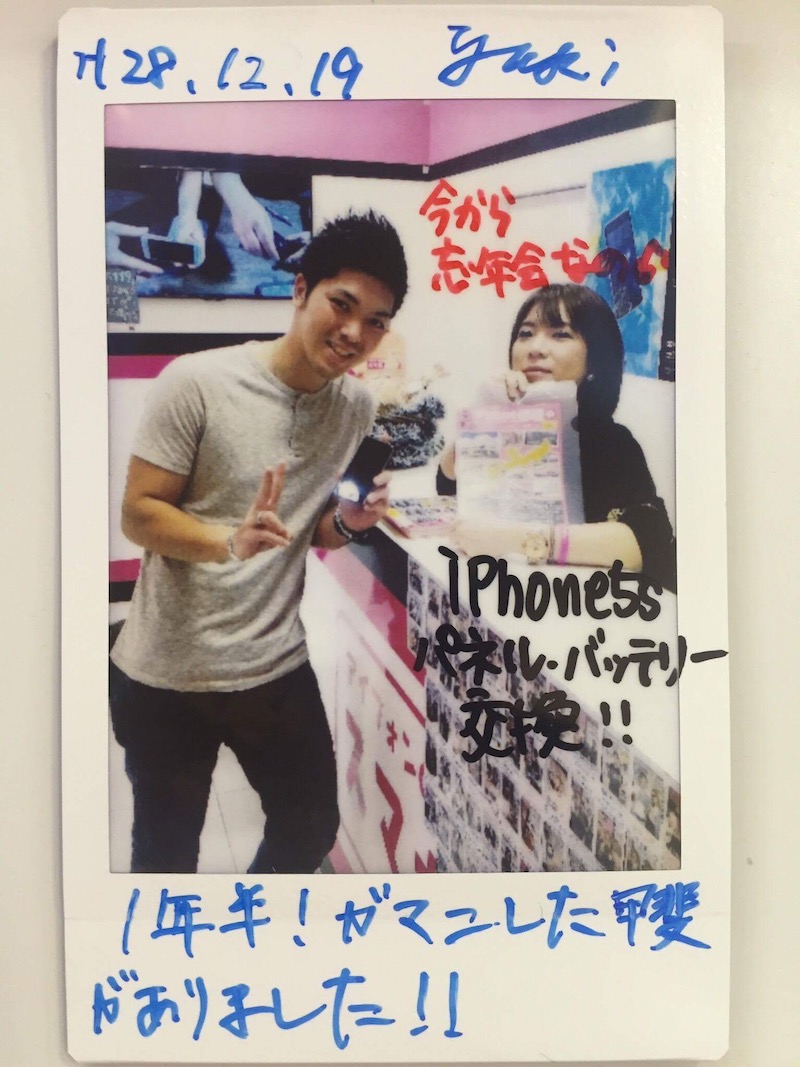 H28.12.19 Yuki
今から
忘年会なのら
iPhone5s
パネル・バッテリー
交換!!
1年年!ガマンした甲斐
がありました!!